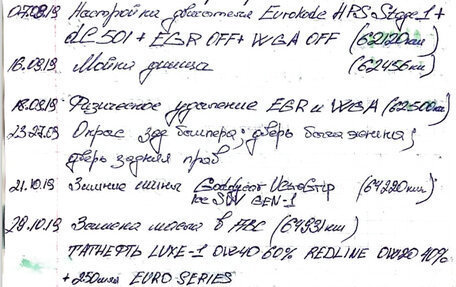 07.09.19 Настройка двигателя Eurokode HPS Stage 1 +
dC 501 + EGR OFF + WGA OFF (62120км)
16.09.19 Мойка днища (62456км)
18.09.19 Физическое удаление EGR и WGA (62500км)
23-27.09 Окрас зад бампера; дверь багажника;
дверь задняя прав
21.10.19 Зимние шины Goodyear UltraGrip (64220км)
Ice SUV GEN-1
28.10.19 Замена масла в ДВС (64931км)
ТАТНЕФТЬ LUXE-1 0W40 60% REDLINE 0W20 40%
+ 250мл EURO SERIES